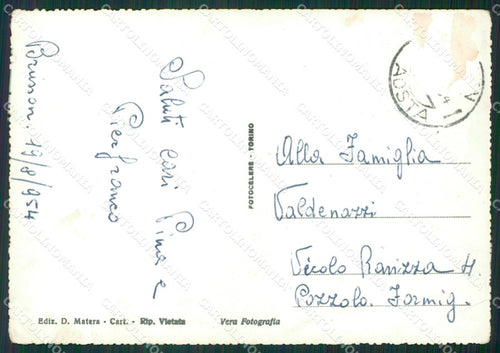 Brusson. 19/8/954
Saluti cari Pina e
Pierfranco
FOTOCELERE - TORINO
AOSTA
Alla Famiglia
Valdenazzi
Vicolo Ranizza 4.
Pozzolo. Formig.
Ediz. D. Matera - Cart. - Rip. Vietata
Vera Fotografia
CARTOLINOMANIA